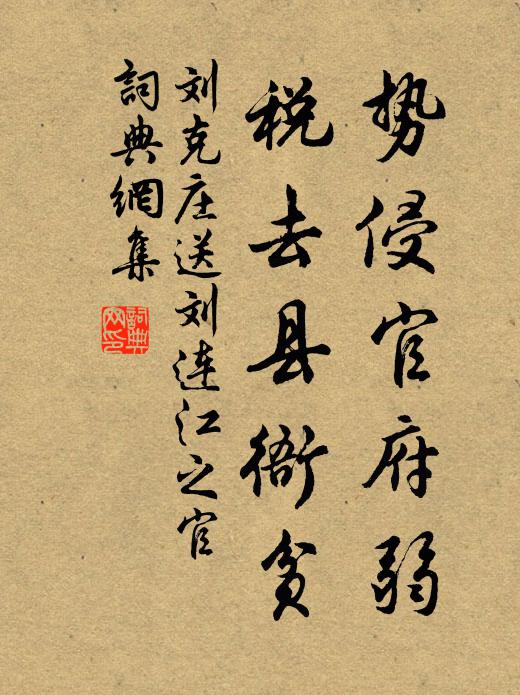 势侵官府弱
税去县衙贫
刘克庄送刘连江之官
词典網集
詞典
网印